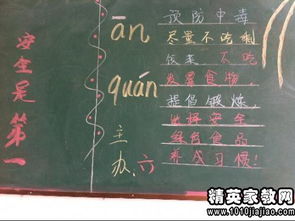 安全是第一
ān
quán
主
办、六
预防中毒
尽量不吃剩
饭菜、不吃
发霉食物,
提倡锻炼,
选择安全
绿色食品
养成习惯!
精英家教网
www.1010jiajiao.com